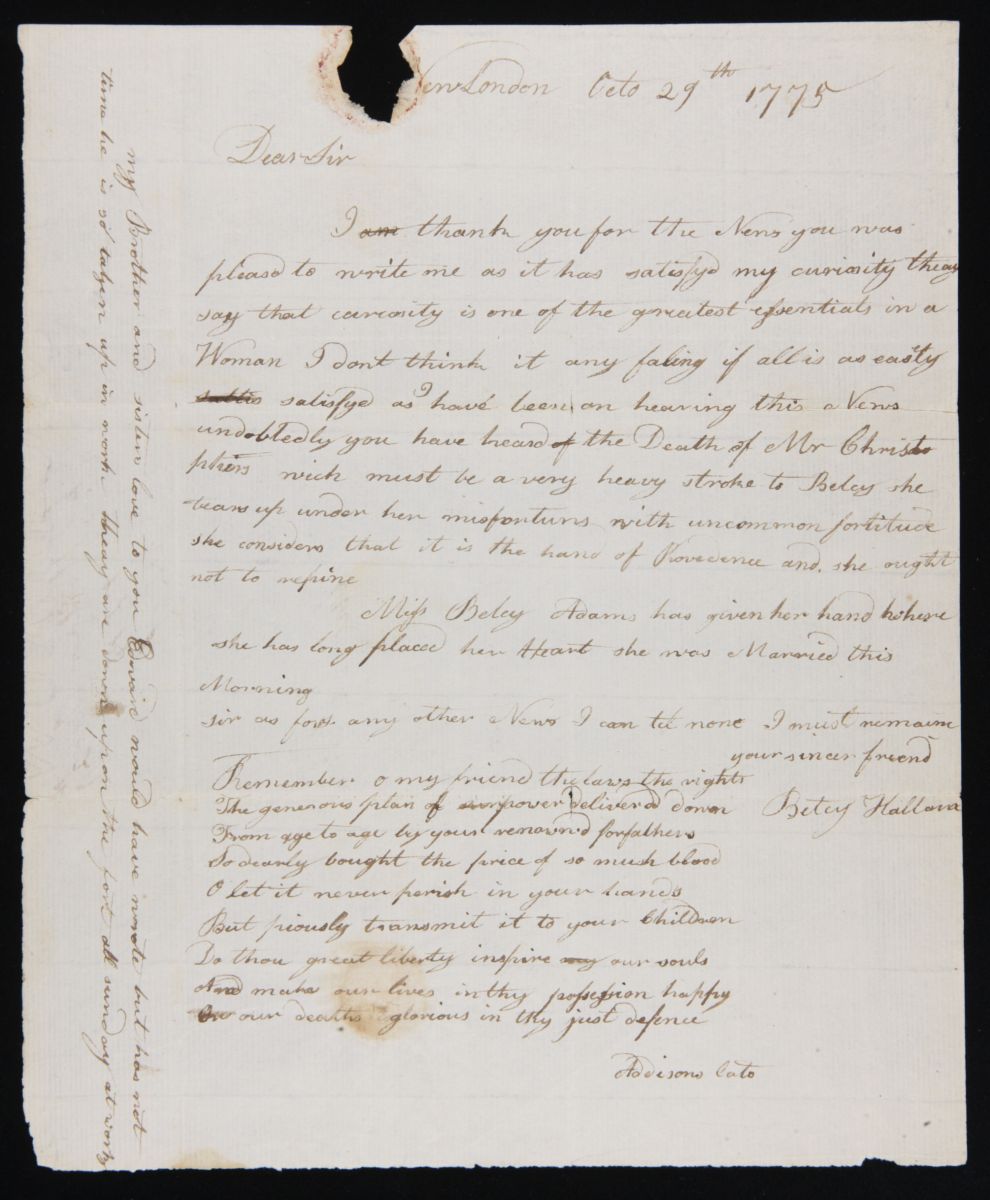 New London Octo 29th 1775
Dear Sir
I am thank you for the News you was
pleasd to write me as it has satisfyd my curiosity theay
say that cureosity is one of the greatest essentials in a
Woman I dont think it any faling if all is as easily
satisfyd as I have been on hearing this News
undobtedly you have heard of the Death of Mr Christo
phers wich must be a very heavy stroke to Betcy she
bears up under her misfortuns with uncommon fortitude
she considers that it is the hand of Provedence and she ought
not to repine
Miss Betcy Adams has given her hand where
she has long placed her Heart she was Married this
Morning
sir as for any other News I can tel none I must remaine
your sincer friend
Betcy Hallam
Remember o my friend the laws the rights
The generous plan of power deliverd down
From age to age by your renownd forfathers
So dearly bought the price of so much blood
O let it never perish in your hands
But piously transmit it to your Children
Do thou great liberty inspire my our souls
And make our lives in thy possession happy
Or our deaths glorious in thy just defence
Addisons Cato
my Brother and sisters love to you Edward would have wrote but has not
time he is so taken up in work theay are down upon the fort all sunday at work